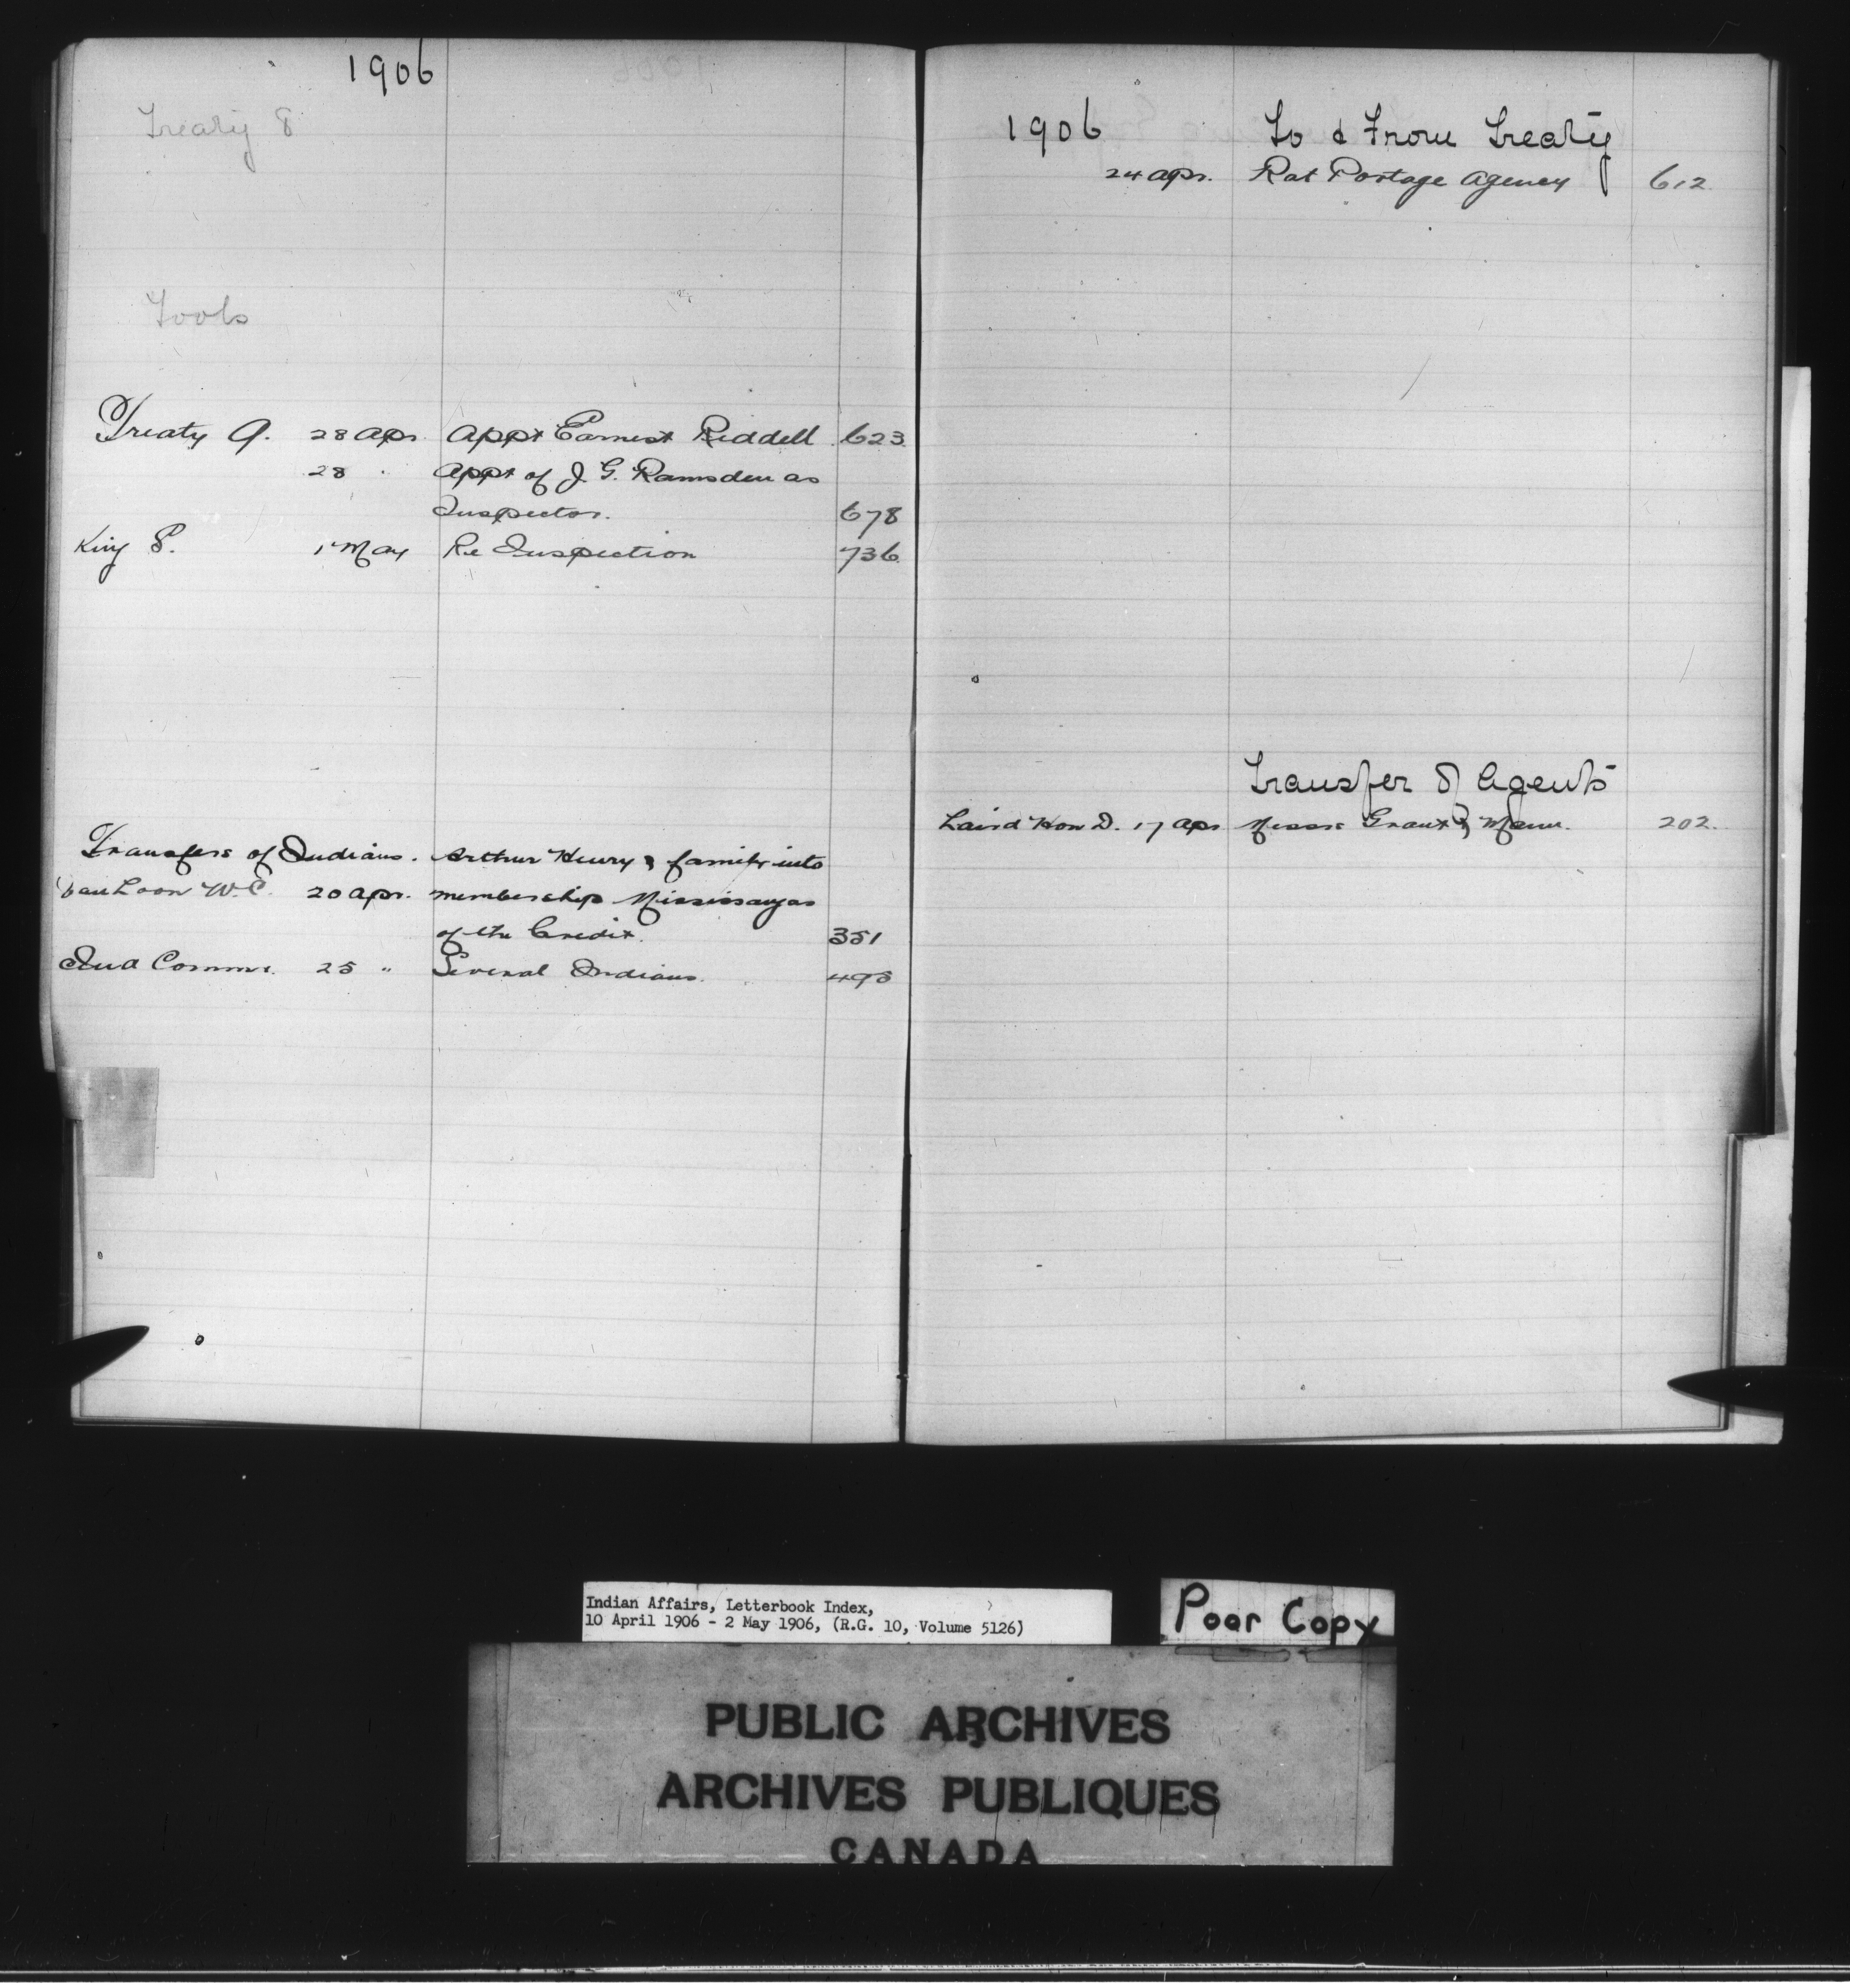 1906
Treaty 8
Tools
Treaty 9. 28 Apr. Appt Earnest Riddell 623
28 " Appt of J. G. Ramsden as
Inspector. 678
King P. 1 May Re Inspection 736
Transfers of Indians. Arthur Henry & family into
Van Loon W.C. 20 Apr. membership Mississaugas
of the Credit. 351
Ind Commr. 25 " Several Indians. 495
1906 To & From Treaty
24 Apr. Rat Portage Agency 612
Transfer of Agents
Laird Hon D. 17 Apr Messrs Grant & Mann. 202.
Indian Affairs, Letterbook Index,
10 April 1906 - 2 May 1906, (R.G. 10, Volume 5126)
Poor Copy
PUBLIC ARCHIVES
ARCHIVES PUBLIQUES
CANADA